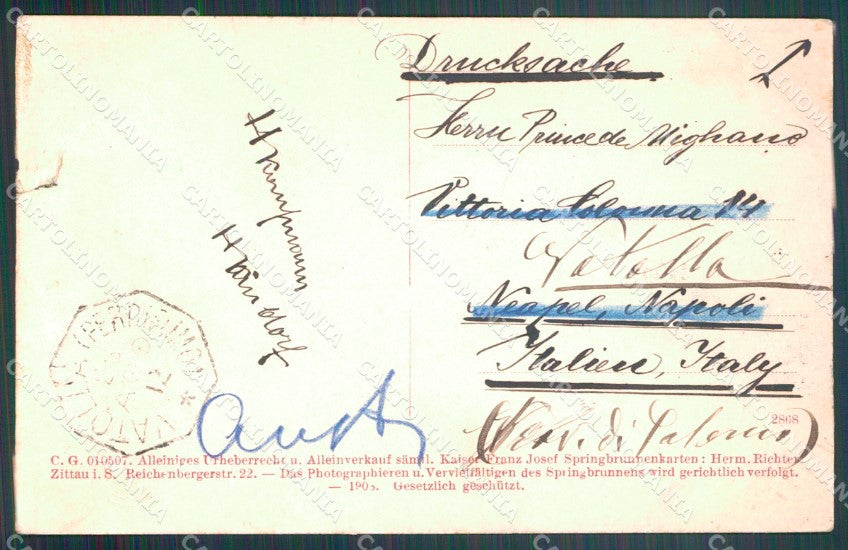 Drucksache
Herrn Prince de Mignano
Vittoria Colonna 14
Vatolla
Neapel, Napoli
Italien, Italy
(Perd. di Salerno)
H Kempmann
Händorf
VATOLLA (PERDIFUMO)
Aust
2868
C. G. 010507. Alleiniges Urheberrecht u. Alleinverkauf sämtl. Kaiser Franz Josef Springbrunnenkarten: Herm. Richter
Zittau i. S. Reichenbergerstr. 22. — Das Photographieren u. Vervielfältigen des Springbrunnens wird gerichtlich verfolgt.
— 1905. Gesetzlich geschützt.
CARTOLINOMANIA